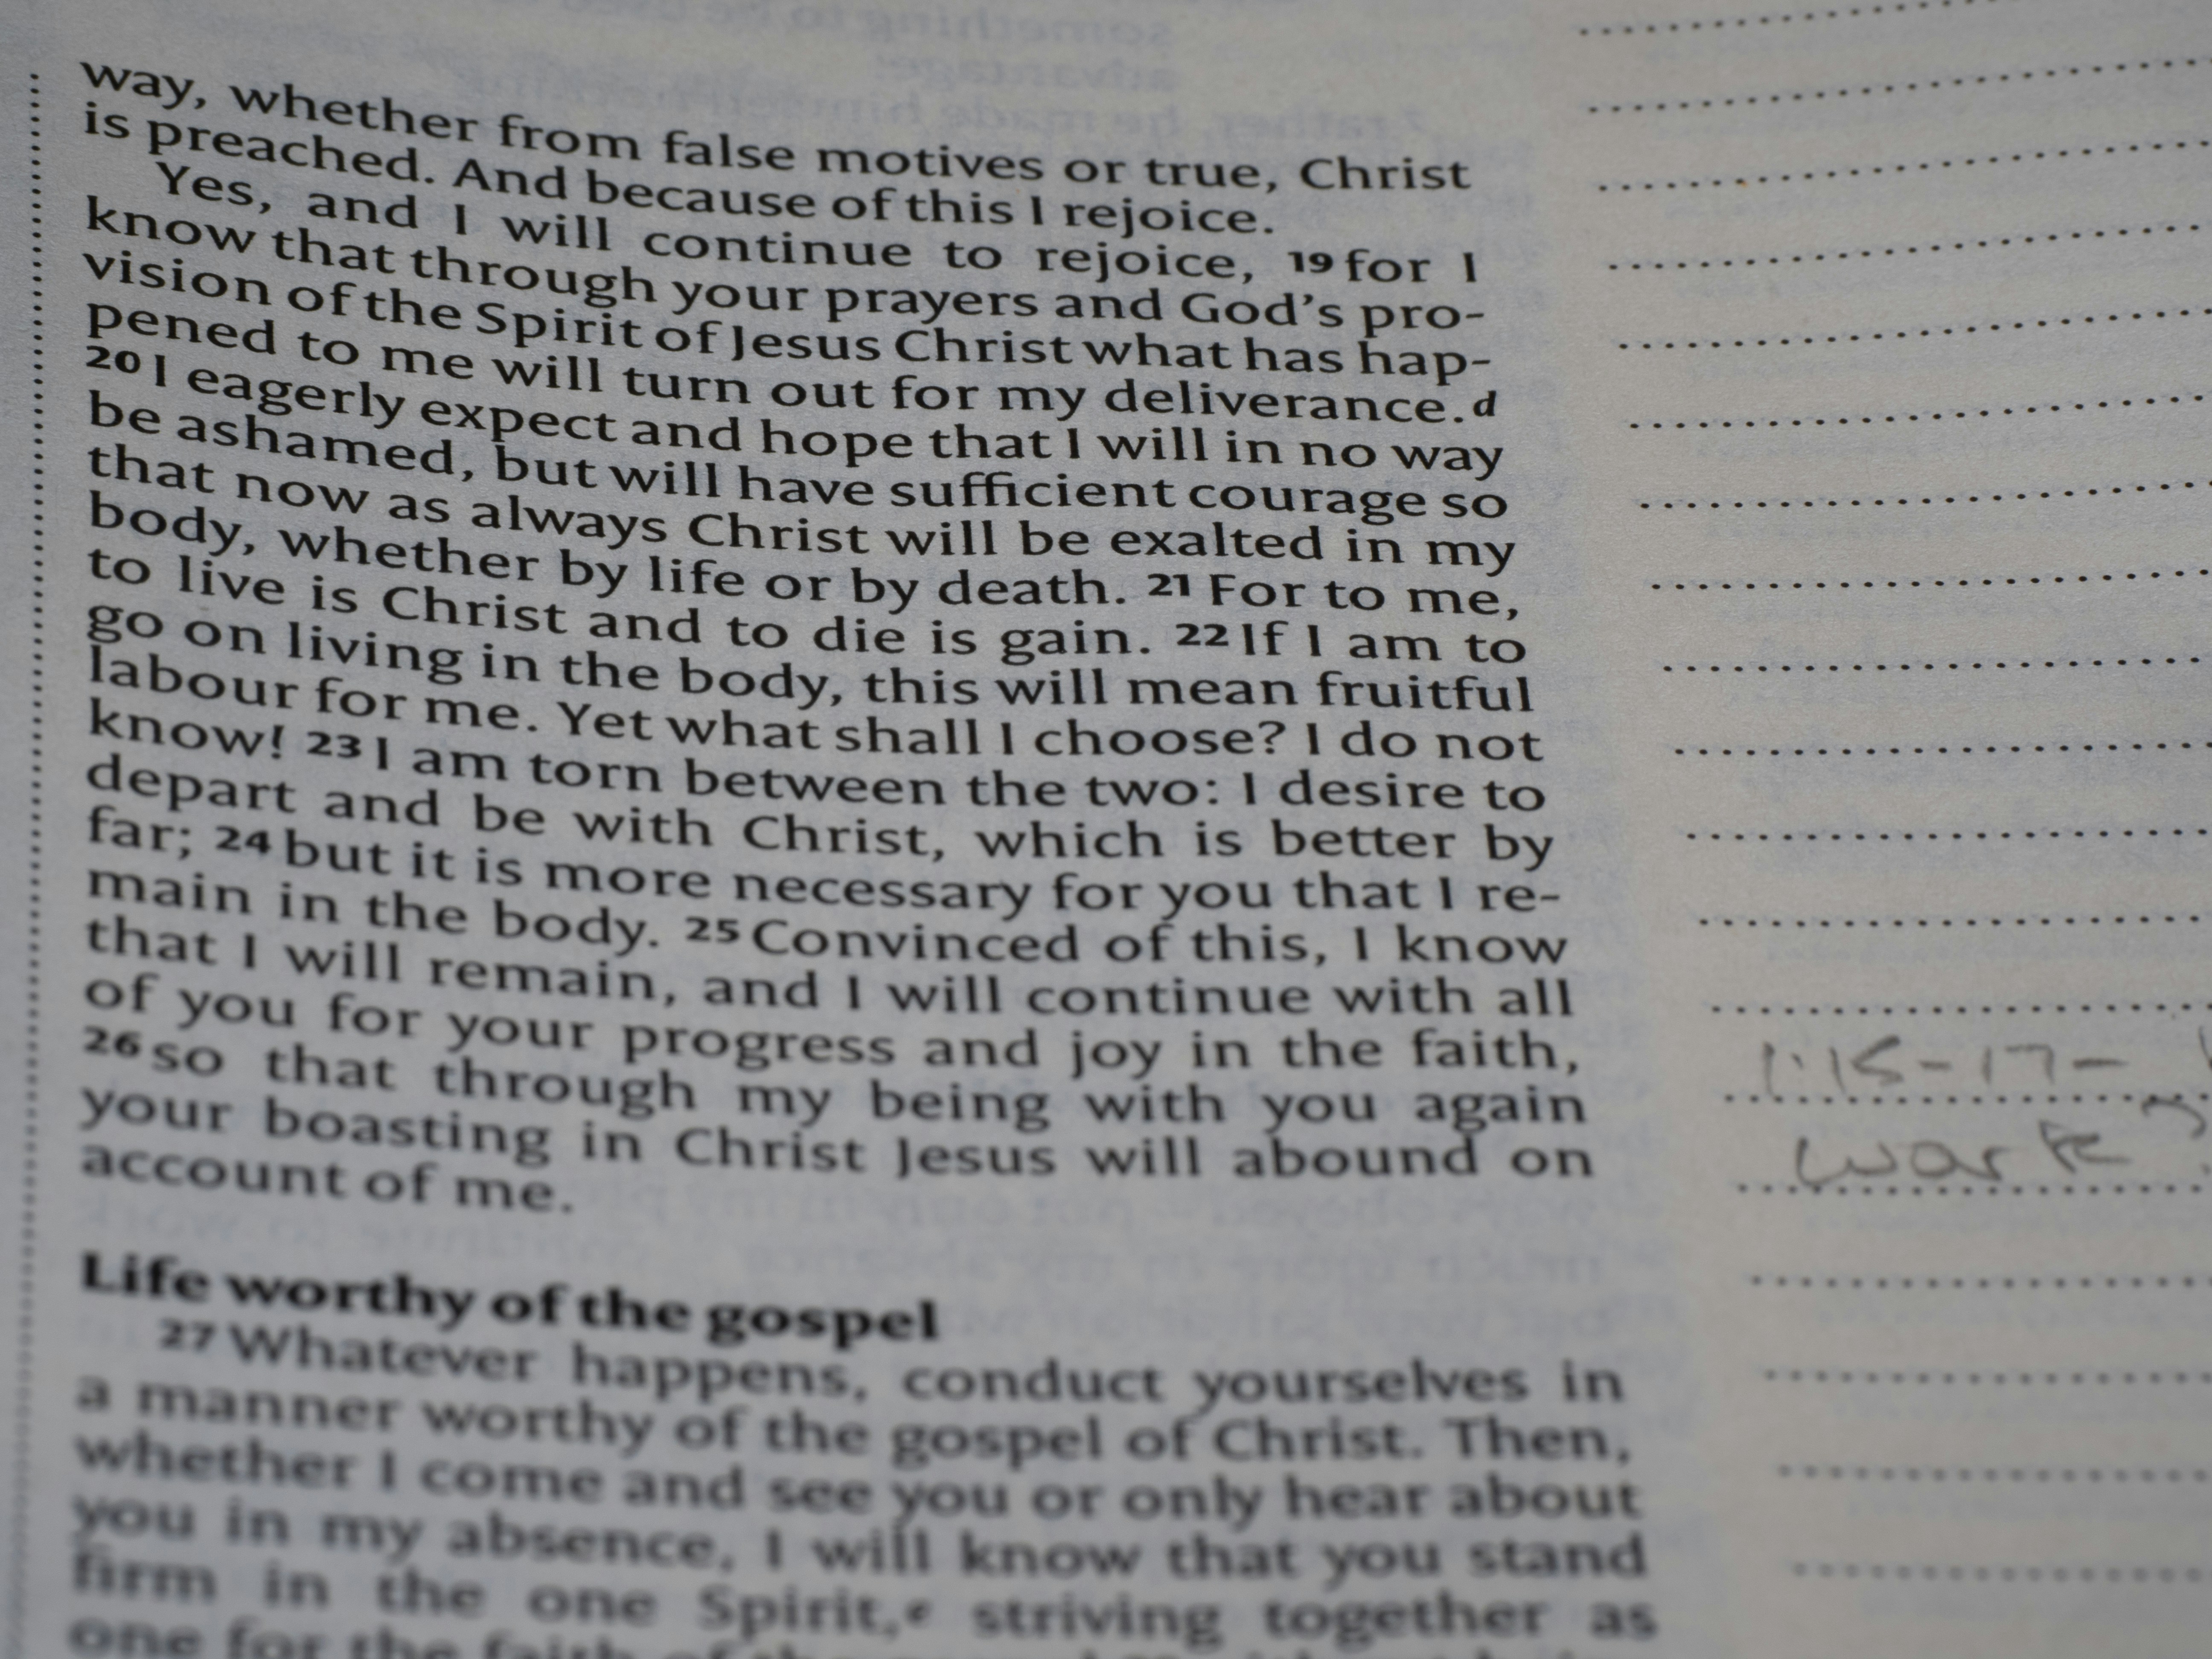 way, whether from false motives or true, Christ
is preached. And because of this I rejoice.
Yes, and I will continue to rejoice, 19 for I
know that through your prayers and God's pro-
vision of the Spirit of Jesus Christ what has hap-
pened to me will turn out for my deliverance.d
20 I eagerly expect and hope that I will in no way
be ashamed, but will have sufficient courage so
that now as always Christ will be exalted in my
body, whether by life or by death. 21 For to me,
to live is Christ and to die is gain. 22 If I am to
go on living in the body, this will mean fruitful
labour for me. Yet what shall I choose? I do not
know! 23 I am torn between the two: I desire to
depart and be with Christ, which is better by
far; 24 but it is more necessary for you that I re-
main in the body. 25 Convinced of this, I know
that I will remain, and I will continue with all
of you for your progress and joy in the faith,
26 so that through my being with you again
your boasting in Christ Jesus will abound on
account of me.
Life worthy of the gospel
27 Whatever happens, conduct yourselves in
a manner worthy of the gospel of Christ. Then,
whether I come and see you or only hear about
you in my absence, I will know that you stand
firm in the one Spirit,e striving together as
one for the faith of the
1:15-17-
work